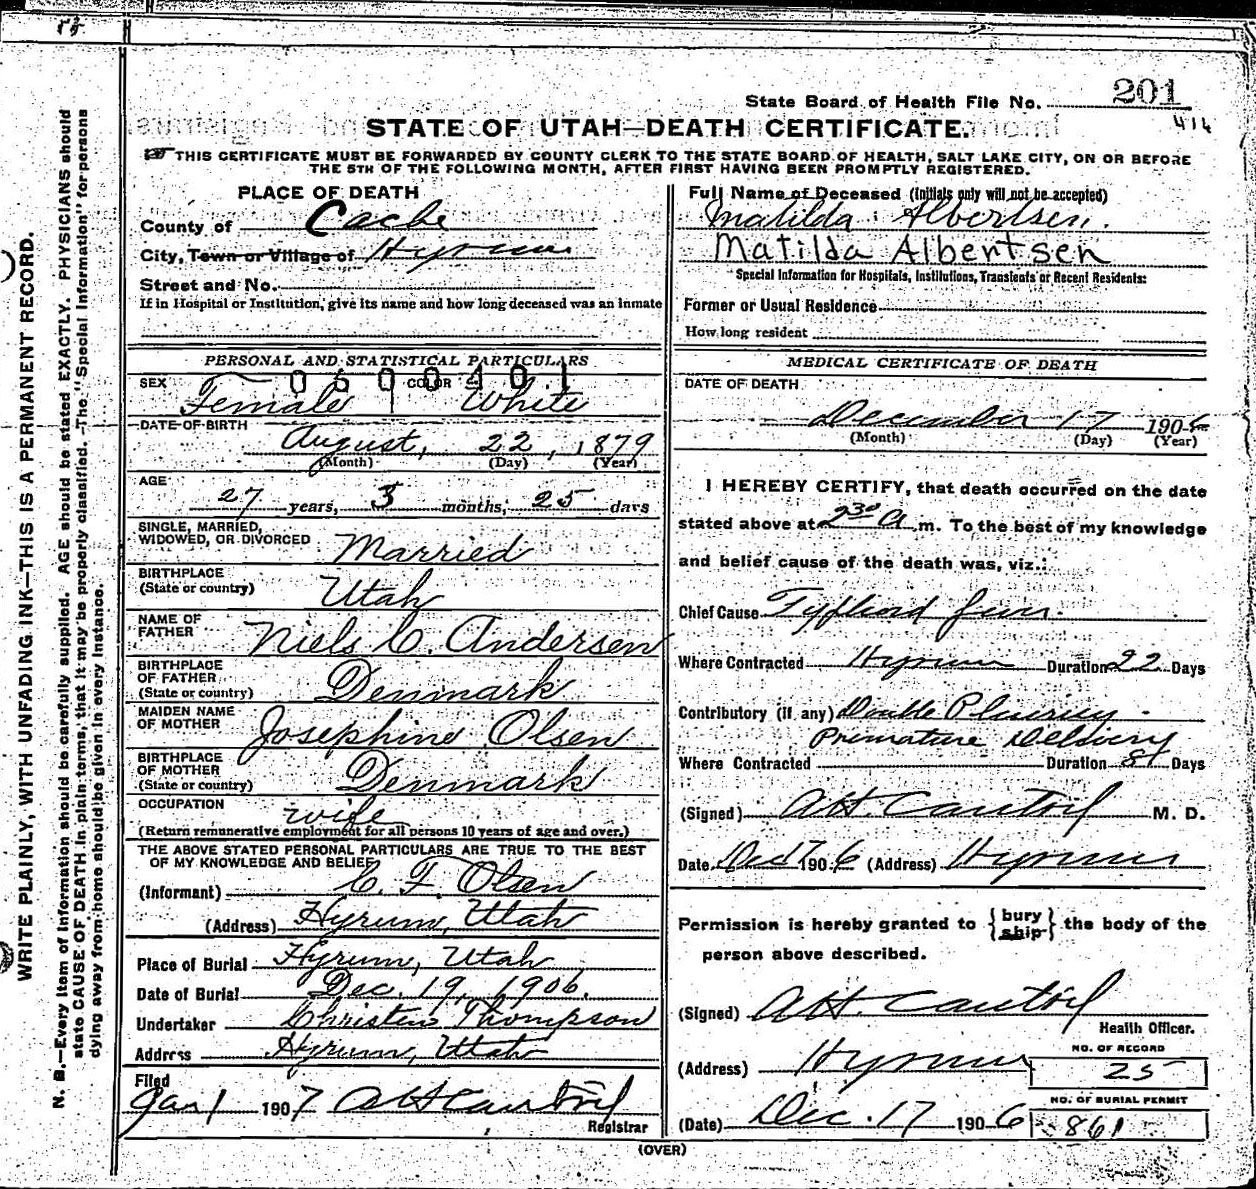 State Board of Health File No. 201
416
STATE OF UTAH—DEATH CERTIFICATE.
THIS CERTIFICATE MUST BE FORWARDED BY COUNTY CLERK TO THE STATE BOARD OF HEALTH, SALT LAKE CITY, ON OR BEFORE
THE 5TH OF THE FOLLOWING MONTH, AFTER FIRST HAVING BEEN PROMPTLY REGISTERED.
WRITE PLAINLY, WITH UNFADING INK—THIS IS A PERMANENT RECORD.
N. B.—Every item of information should be carefully supplied. AGE should be stated EXACTLY. PHYSICIANS should
state CAUSE OF DEATH in plain terms, that it may be properly classified. The "Special Information" for persons
dying away from home should be given in every instance.
PLACE OF DEATH
County of Cache
City, Town or Village of Hyrum
Street and No.
If in Hospital or Institution, give its name and how long deceased was an inmate
PERSONAL AND STATISTICAL PARTICULARS
0600401
SEX Female COLOR White
DATE OF BIRTH
August, 22, 1879
(Month) (Day) (Year)
AGE
27 years, 3 months, 25 days
SINGLE, MARRIED,
WIDOWED, OR DIVORCED Married
BIRTHPLACE
(State or country) Utah
NAME OF
FATHER Niels C. Andersen
BIRTHPLACE
OF FATHER
(State or country) Denmark
MAIDEN NAME
OF MOTHER Josephine Olsen
BIRTHPLACE
OF MOTHER
(State or country) Denmark
OCCUPATION wife
(Return remunerative employment for all persons 10 years of age and over.)
THE ABOVE STATED PERSONAL PARTICULARS ARE TRUE TO THE BEST
OF MY KNOWLEDGE AND BELIEF
(Informant) C. F. Olsen
(Address) Hyrum, Utah
Place of Burial Hyrum, Utah
Date of Burial Dec. 19, 1906.
Undertaker Christen Thompson
Address Hyrum, Utah
Filed
Jan 1 1907 Registrar
Full Name of Deceased (Initials only will not be accepted)
Matilda Albertsen.
Matilda Albertsen
Special Information for Hospitals, Institutions, Transients or Recent Residents:
Former or Usual Residence
How long resident
MEDICAL CERTIFICATE OF DEATH
DATE OF DEATH
December 17 1906
(Month) (Day) (Year)
I HEREBY CERTIFY, that death occurred on the date
stated above at 2 30 A m. To the best of my knowledge
and belief cause of the death was, viz.:
Chief Cause Typhoid fever.
Where Contracted Hyrum Duration 22 Days
Contributory (if any) Double Pleurisy.
Premature Delivery
Where Contracted Duration 8 Days
(Signed) M. D.
Date Dec 17 1906 (Address) Hyrum
Permission is hereby granted to { bury ship } the body of the
person above described.
(Signed)
Health Officer.
(Address) Hyrum
NO. OF RECORD
25
NO. OF BURIAL PERMIT
861
(Date) Dec. 17 1906
(OVER)